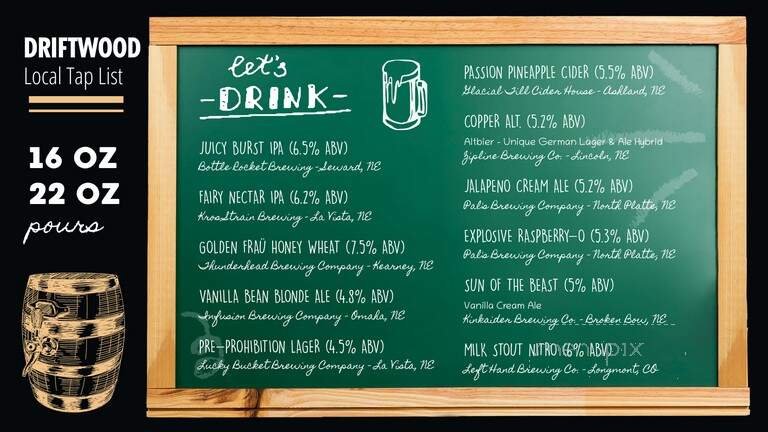 DRIFTWOOD
Local Tap List
16 OZ
22 OZ
pours
let's
-DRINK-
JUICY BURST IPA (6.5% ABV)
Bottle Rocket Brewing - Seward, NE
FAIRY NECTAR IPA (6.2% ABV)
KrosStrain Brewing - La Vista, NE
GOLDEN FRAÜ HONEY WHEAT (7.5% ABV)
Thunderhead Brewing Company - Kearney, NE
VANILLA BEAN BLONDE ALE (4.8% ABV)
Infusion Brewing Company - Omaha, NE
PRE-PROHIBITION LAGER (4.5% ABV)
Lucky Bucket Brewing Company - La Vista, NE
PASSION PINEAPPLE CIDER (5.5% ABV)
Glacial Till Cider House - Ashland, NE
COPPER ALT. (5.2% ABV)
Altbier - Unique German Lager & Ale Hybrid
Zipline Brewing Co. - Lincoln, NE
JALAPENO CREAM ALE (5.2% ABV)
Pals Brewing Company - North Platte, NE
EXPLOSIVE RASPBERRY-O (5.3% ABV)
Pals Brewing Company - North Platte, NE
SUN OF THE BEAST (5% ABV)
Vanilla Cream Ale
Kinkaider Brewing Co. - Broken Bow, NE
MILK STOUT NITRO (6% ABV)
Left Hand Brewing Co. - Longmont, CO